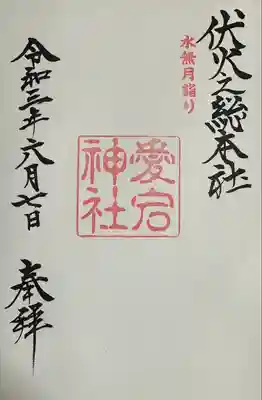 伏火之総本社
水無月詣り
愛宕
神社
令和三年六月七日
奉拜